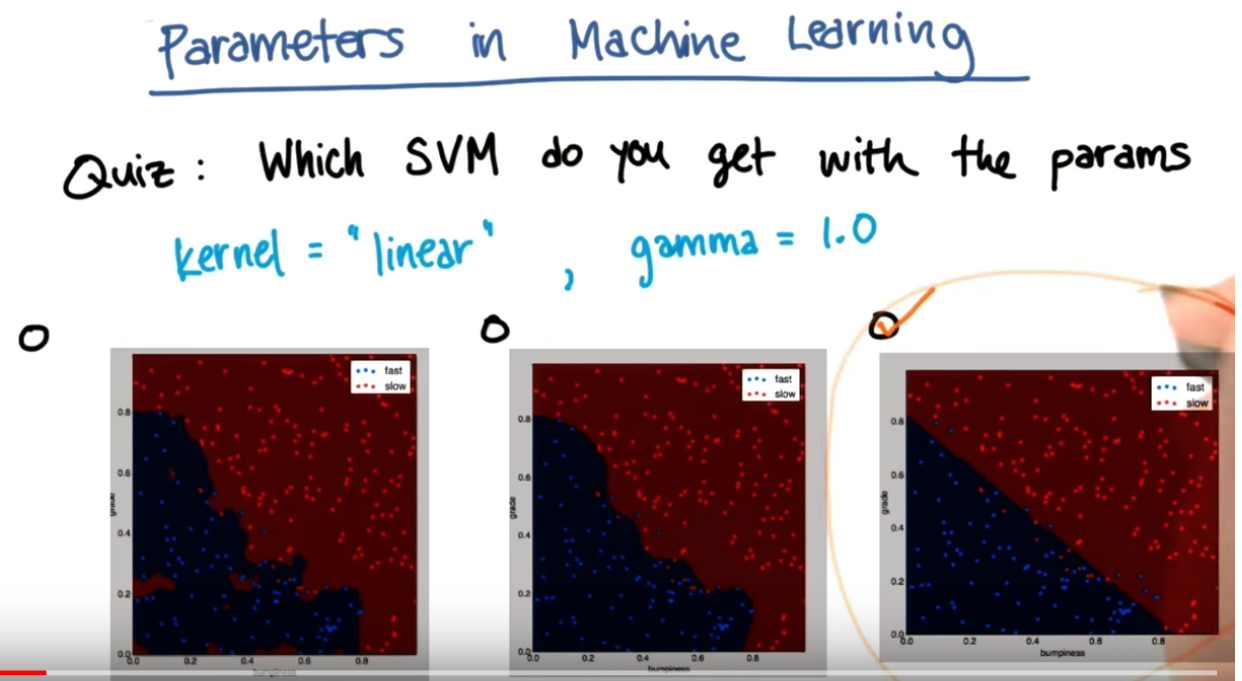 Parameters in Machine Learning
Quiz: Which SVM do you get with the params
kernel = "linear", gamma = 1.0
fast
slow
0.8
0.6
0.4
0.2
0.0
0.0 0.2 0.4 0.6 0.8
bumpiness
fast
slow
grade
0.8
0.6
0.4
0.2
0.0
0.0 0.2 0.4 0.6 0.8
bumpiness
fast
slow
grade
0.8
0.6
0.4
0.2
0.0
0.0 0.2 0.4 0.6 0.8
bumpiness